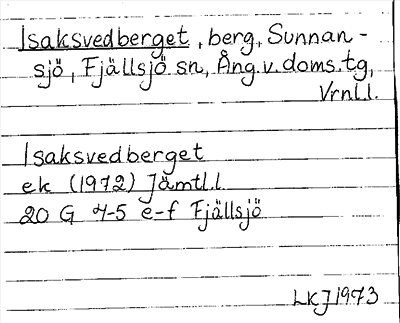 Isaksvedberget, berg, Sunnan-
sjö, Fjällsjö sn, Ång.v.doms.tg,
Vrnl.l.
Isaksvedberget
ek (1972) Jämtl.l.
20 G 4-5 e-f Fjällsjö
LKJ 1973